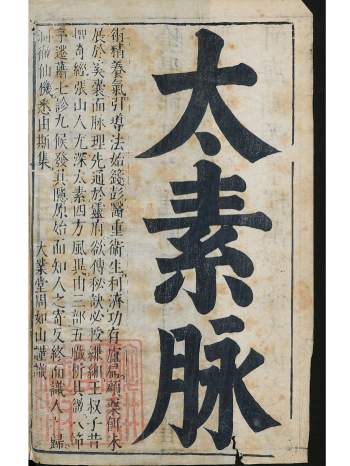 太素脉
術精養氣引導法始籛彭醫重衛生利濟功有盧扁顧未
展於囊而脉理先通於靈府欲傳秘訣必授縑緗王叔子昔
奇經張山人尤深太素四方風異由三部五臟析其微八節
七診九候發其隱原始而知人之寄反終而識人之歸
洞徹仙機悉由斯集
大業堂周如山謹識